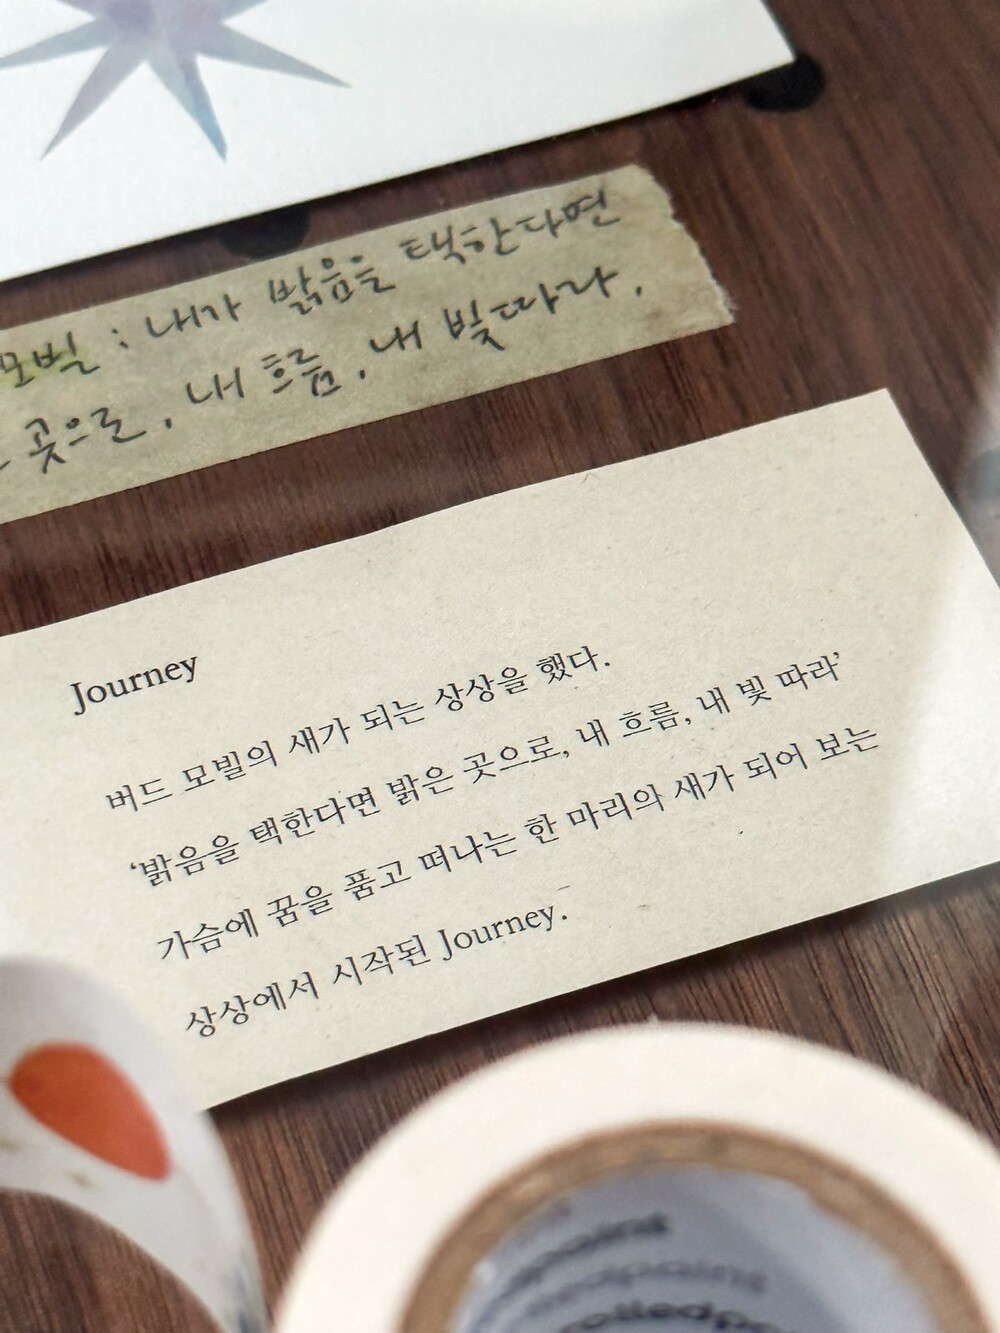 모빌 : 내가 밝음을 택한다면
곳으로, 내 흐름, 내 빛따라.
Journey
버드 모빌의 새가 되는 상상을 했다.
‘밝음을 택한다면 밝은 곳으로, 내 흐름, 내 빛 따라’
가슴에 꿈을 품고 떠나는 한 마리의 새가 되어 보는
상상에서 시작된 Journey.